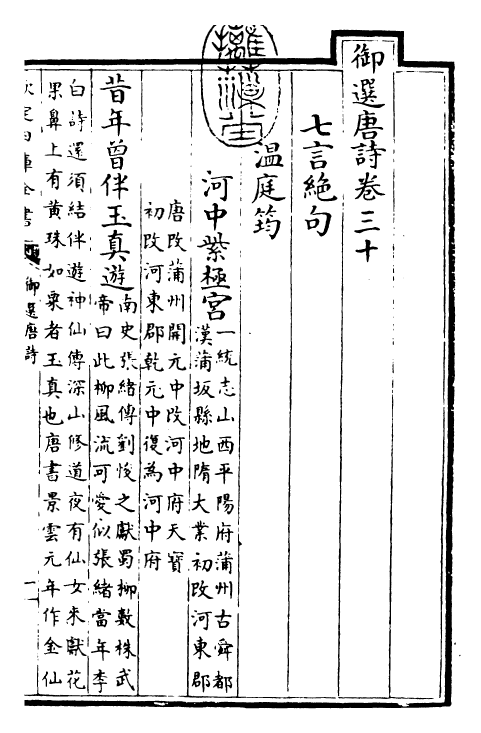 御選唐詩卷三十
七言絶句
温庭筠
河中紫極宮
一統志山西平陽府蒲州古舜都
漢蒲坂縣地隋大業初改河東郡
唐改蒲州開元中改河中府天寶
初改河東郡乾元中復為河中府
昔年曾伴玉真遊
南史張緒傳劉悛之獻蜀柳數株武
帝曰此柳風流可愛似張緒當年李
白詩還須結伴遊神仙傳深山修道夜有仙女來獻花
果鼻上有黄珠如粟者玉真也唐書景雲元年作金仙
欽定四庫全書
御選唐詩
一